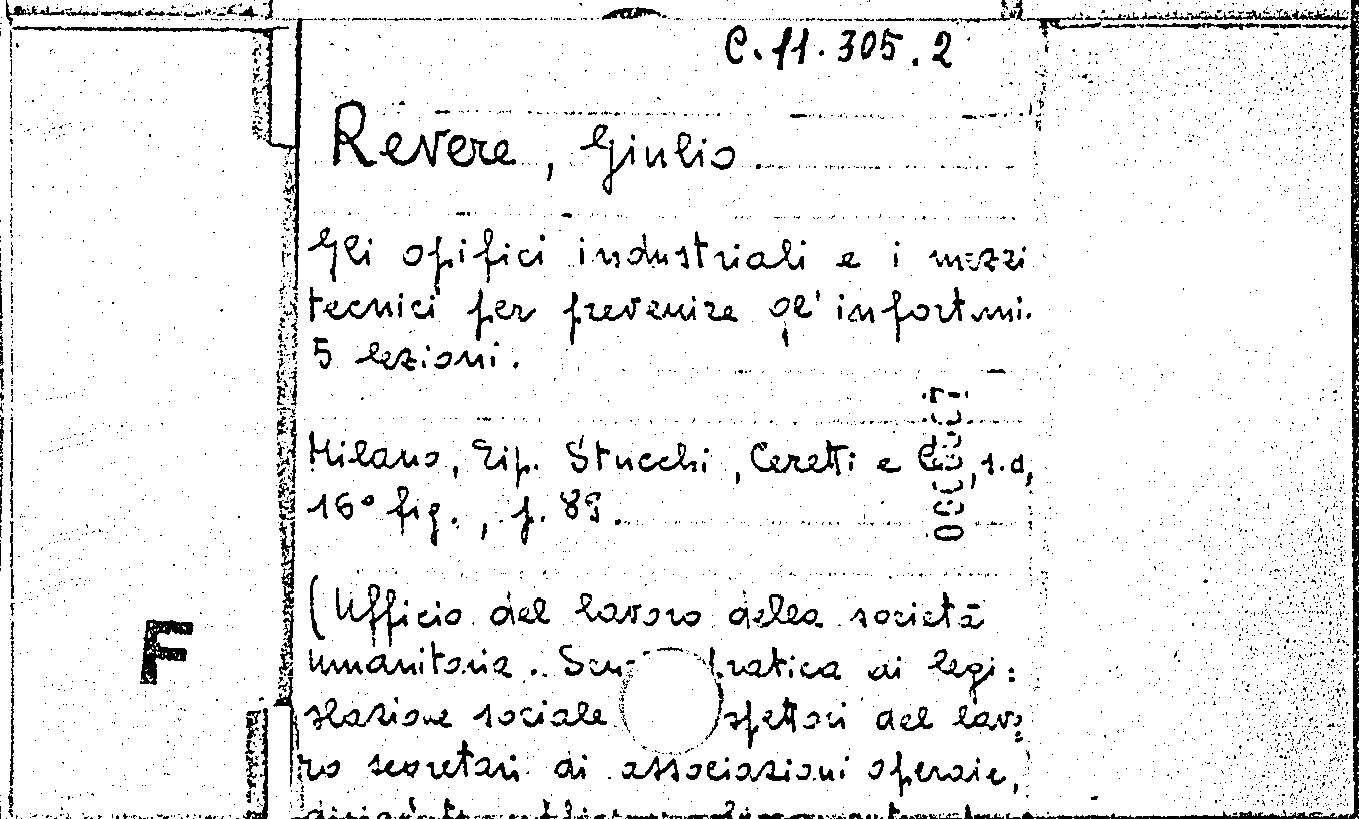 C.11.305.2
Revere, Giulio.
Gli opifici industriali e i mezzi
tecnici per prevenire gl'infortuni.
5 lezioni.
Milano, Tip. Stucchi, Ceretti e C., s.d,
16° fig., p. 89.
(Ufficio del lavoro della società
umanitaria. pratica di legi:
slazione sociale del lavo:
ro segretari di associazioni operaie,
F